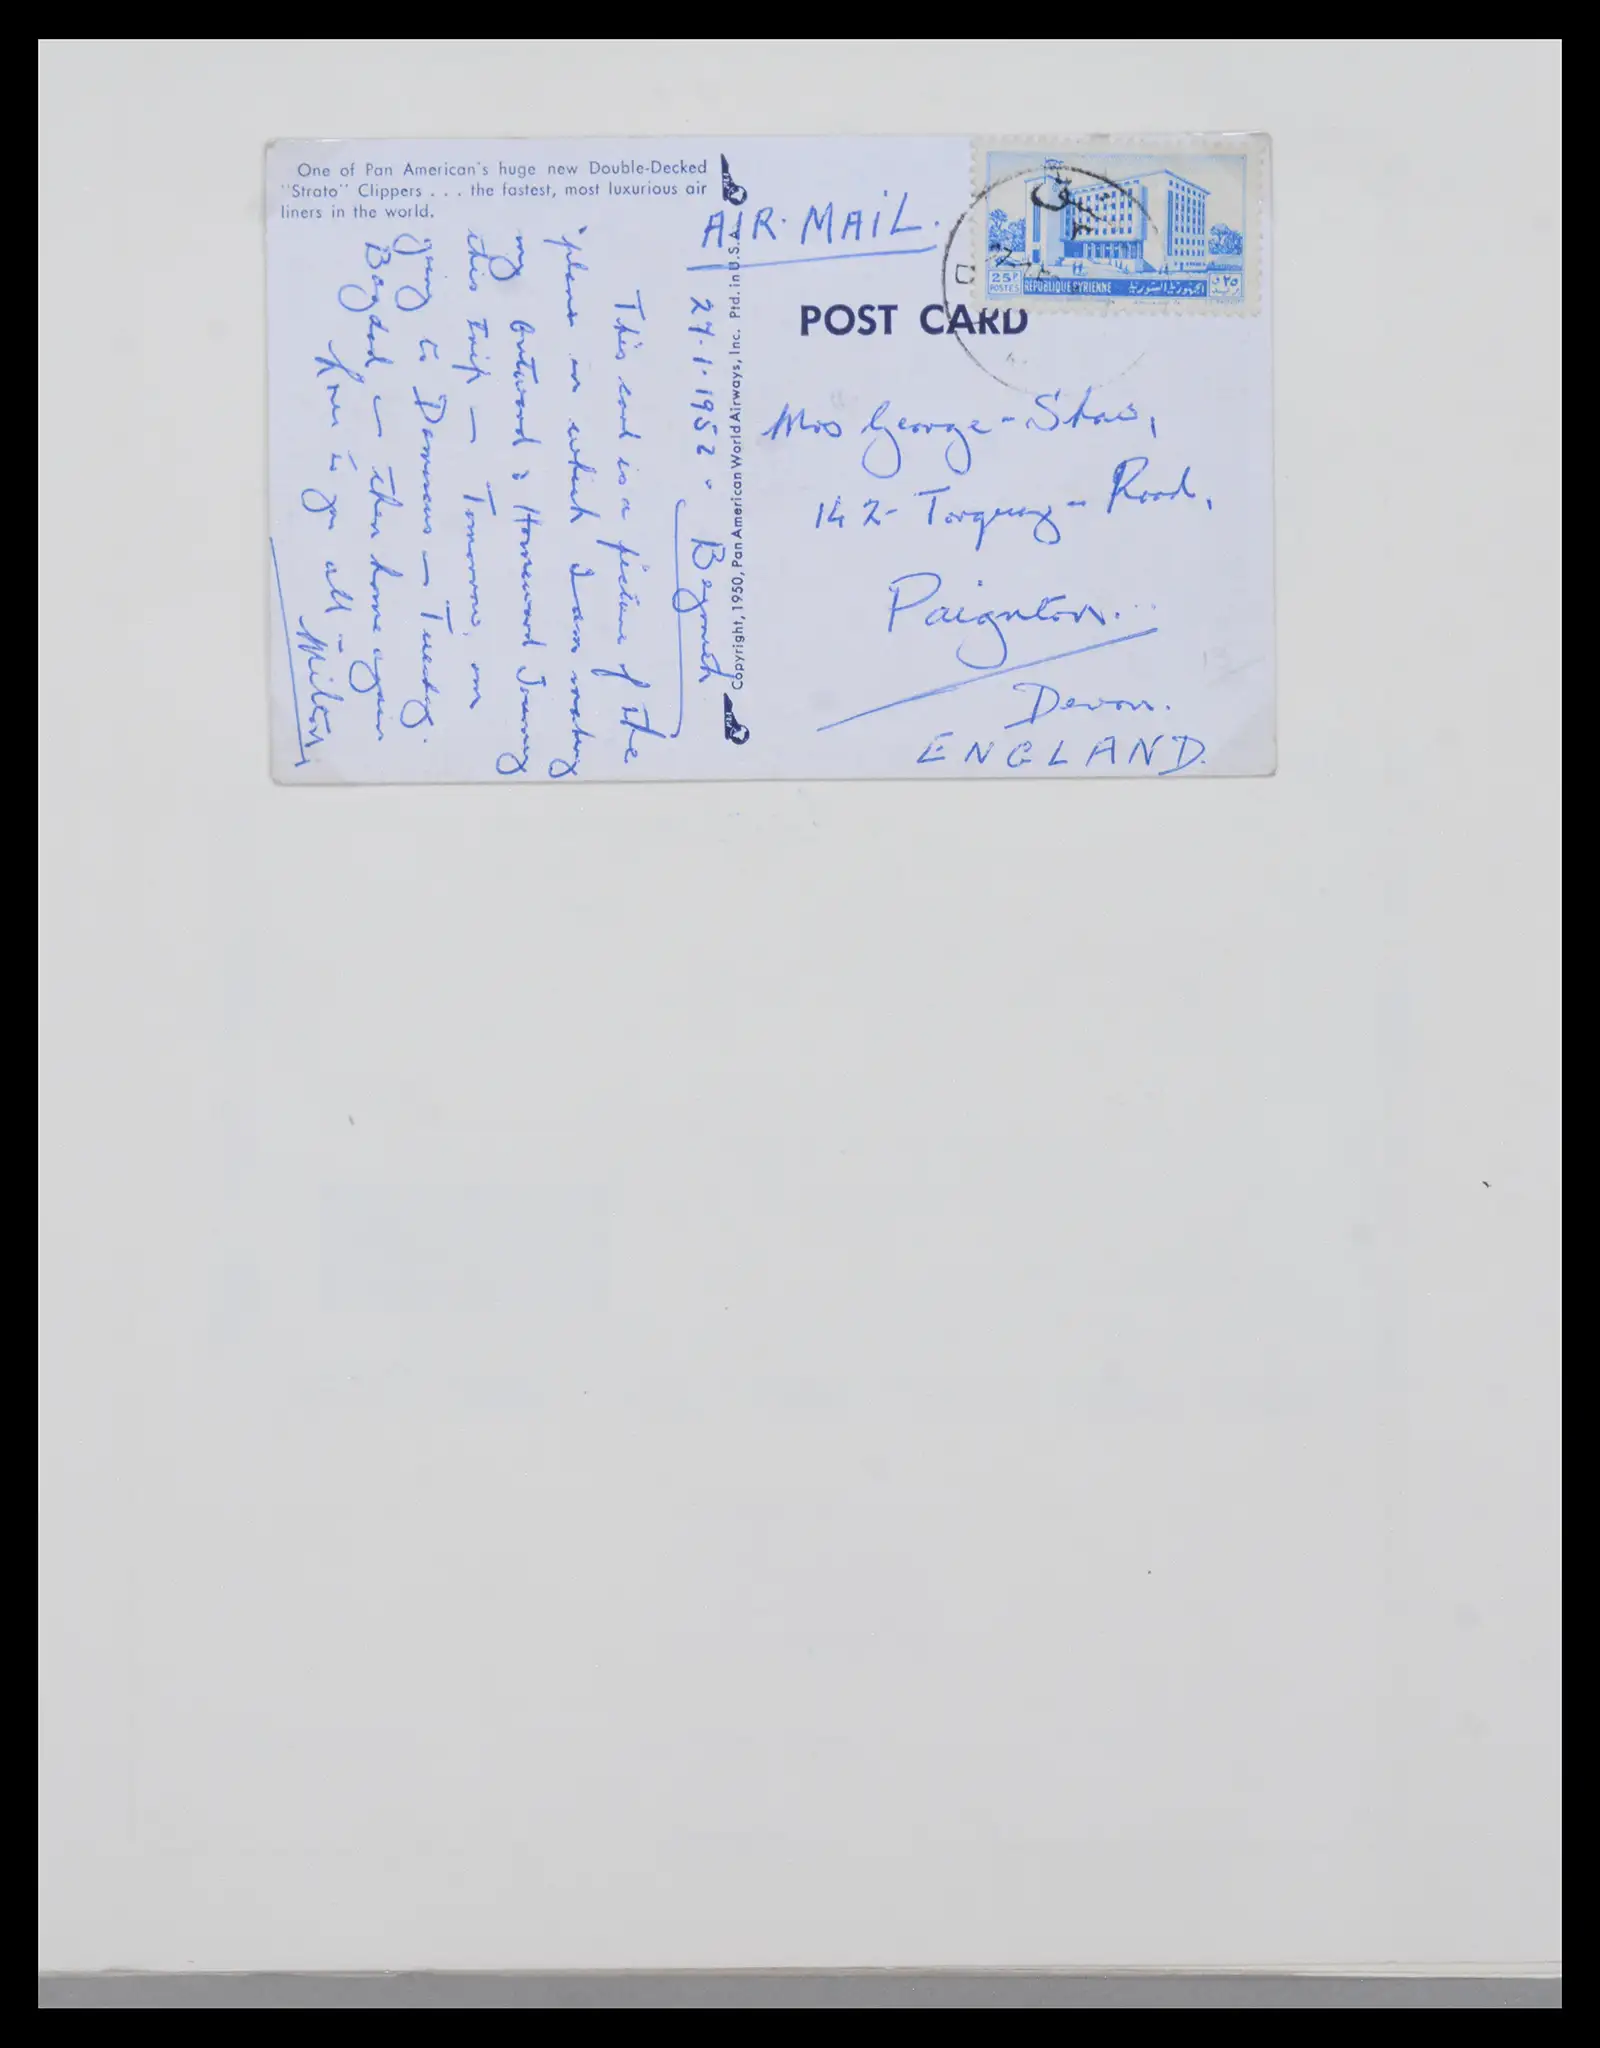 One of Pan American's huge new Double-Decked
"Strato" Clippers . . . the fastest, most luxurious air
liners in the world.
27.1.1952. Beyrouth
This card is a picture of the
'plane in which I am making
my Outward & Homeward Journey
this trip — Tomorrow, am
going to Damascus — Tuesday.
Bagdad — then home again
Love to you all —
Milton
Copyright, 1950, Pan American World Airways, Inc. Ptd. in U.S.A.
AIR. MAIL.
POST CARD
25P
POSTES
REPUBLIQUE SYRIENNE
الجمهورية السورية
٢٥ ق
بريد
Mrs George-Shaw,
142 - Torquay - Road,
Paignton...
Devon.
ENGLAND.